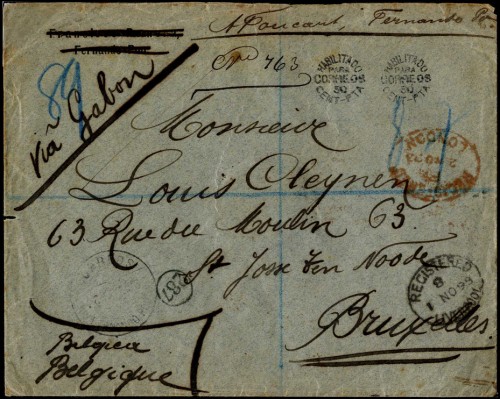 A Foucart, Fernando Po
Fernando Poo
Nº 763
HABILITADO
PARA
CORREOS
50
CENT-PTA
HABILITADO
PARA
CORREOS
50
CENT-PTA
89
via Gabon
Monsieur
Louis Cleynen
63 Rue du Moulin 63
St Josse Ten Noode
Bruxelles
LONDON
REGISTERED
1 NO 99
LIVERPOOL
287
Belgica
Belgique